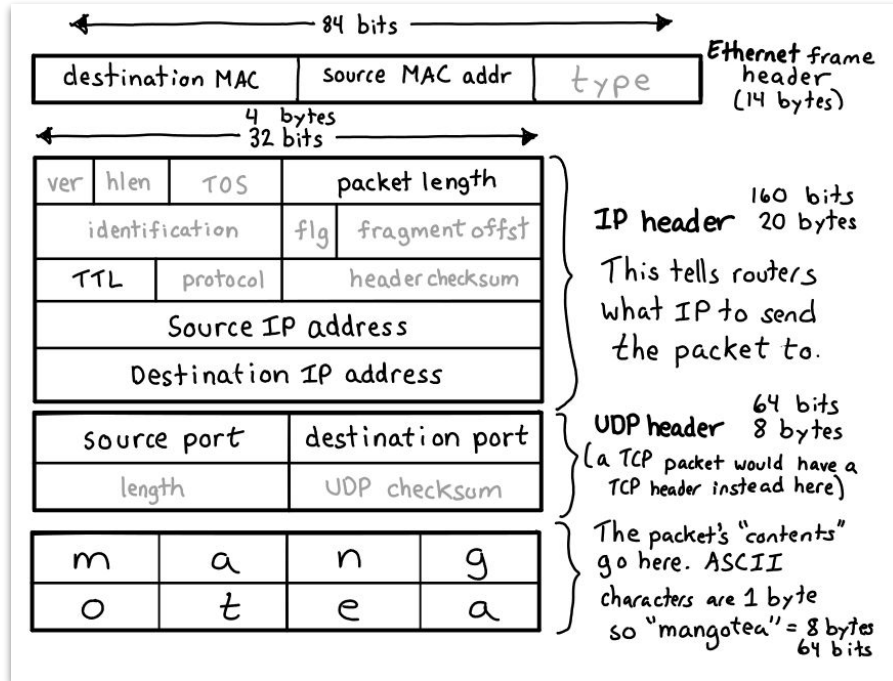 84 bits
destination MAC source MAC addr type
Ethernet frame
header
(14 bytes)
4 bytes
32 bits
ver hlen TOS packet length
identification flg fragment offst
TTL protocol header checksum
Source IP address
Destination IP address
IP header
160 bits
20 bytes
This tells routers
what IP to send
the packet to.
source port destination port
length UDP checksum
UDP header
64 bits
8 bytes
(a TCP packet would have a
TCP header instead here)
m a n g
o t e a
The packet's "contents"
go here. ASCII
characters are 1 byte
so "mangotea" = 8 bytes
64 bits